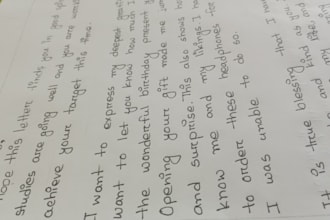 hope this letter finds you in good
studies are going well and you
achieve your target this time.
I want to express my deepest
want to let you know how much I
the wonderful birthday present
Opening your gift made me
and surprise. This also shows
know me and my likings. I
to order these headphones
I was unable to do so.
It is true blessing
that I
kind
and